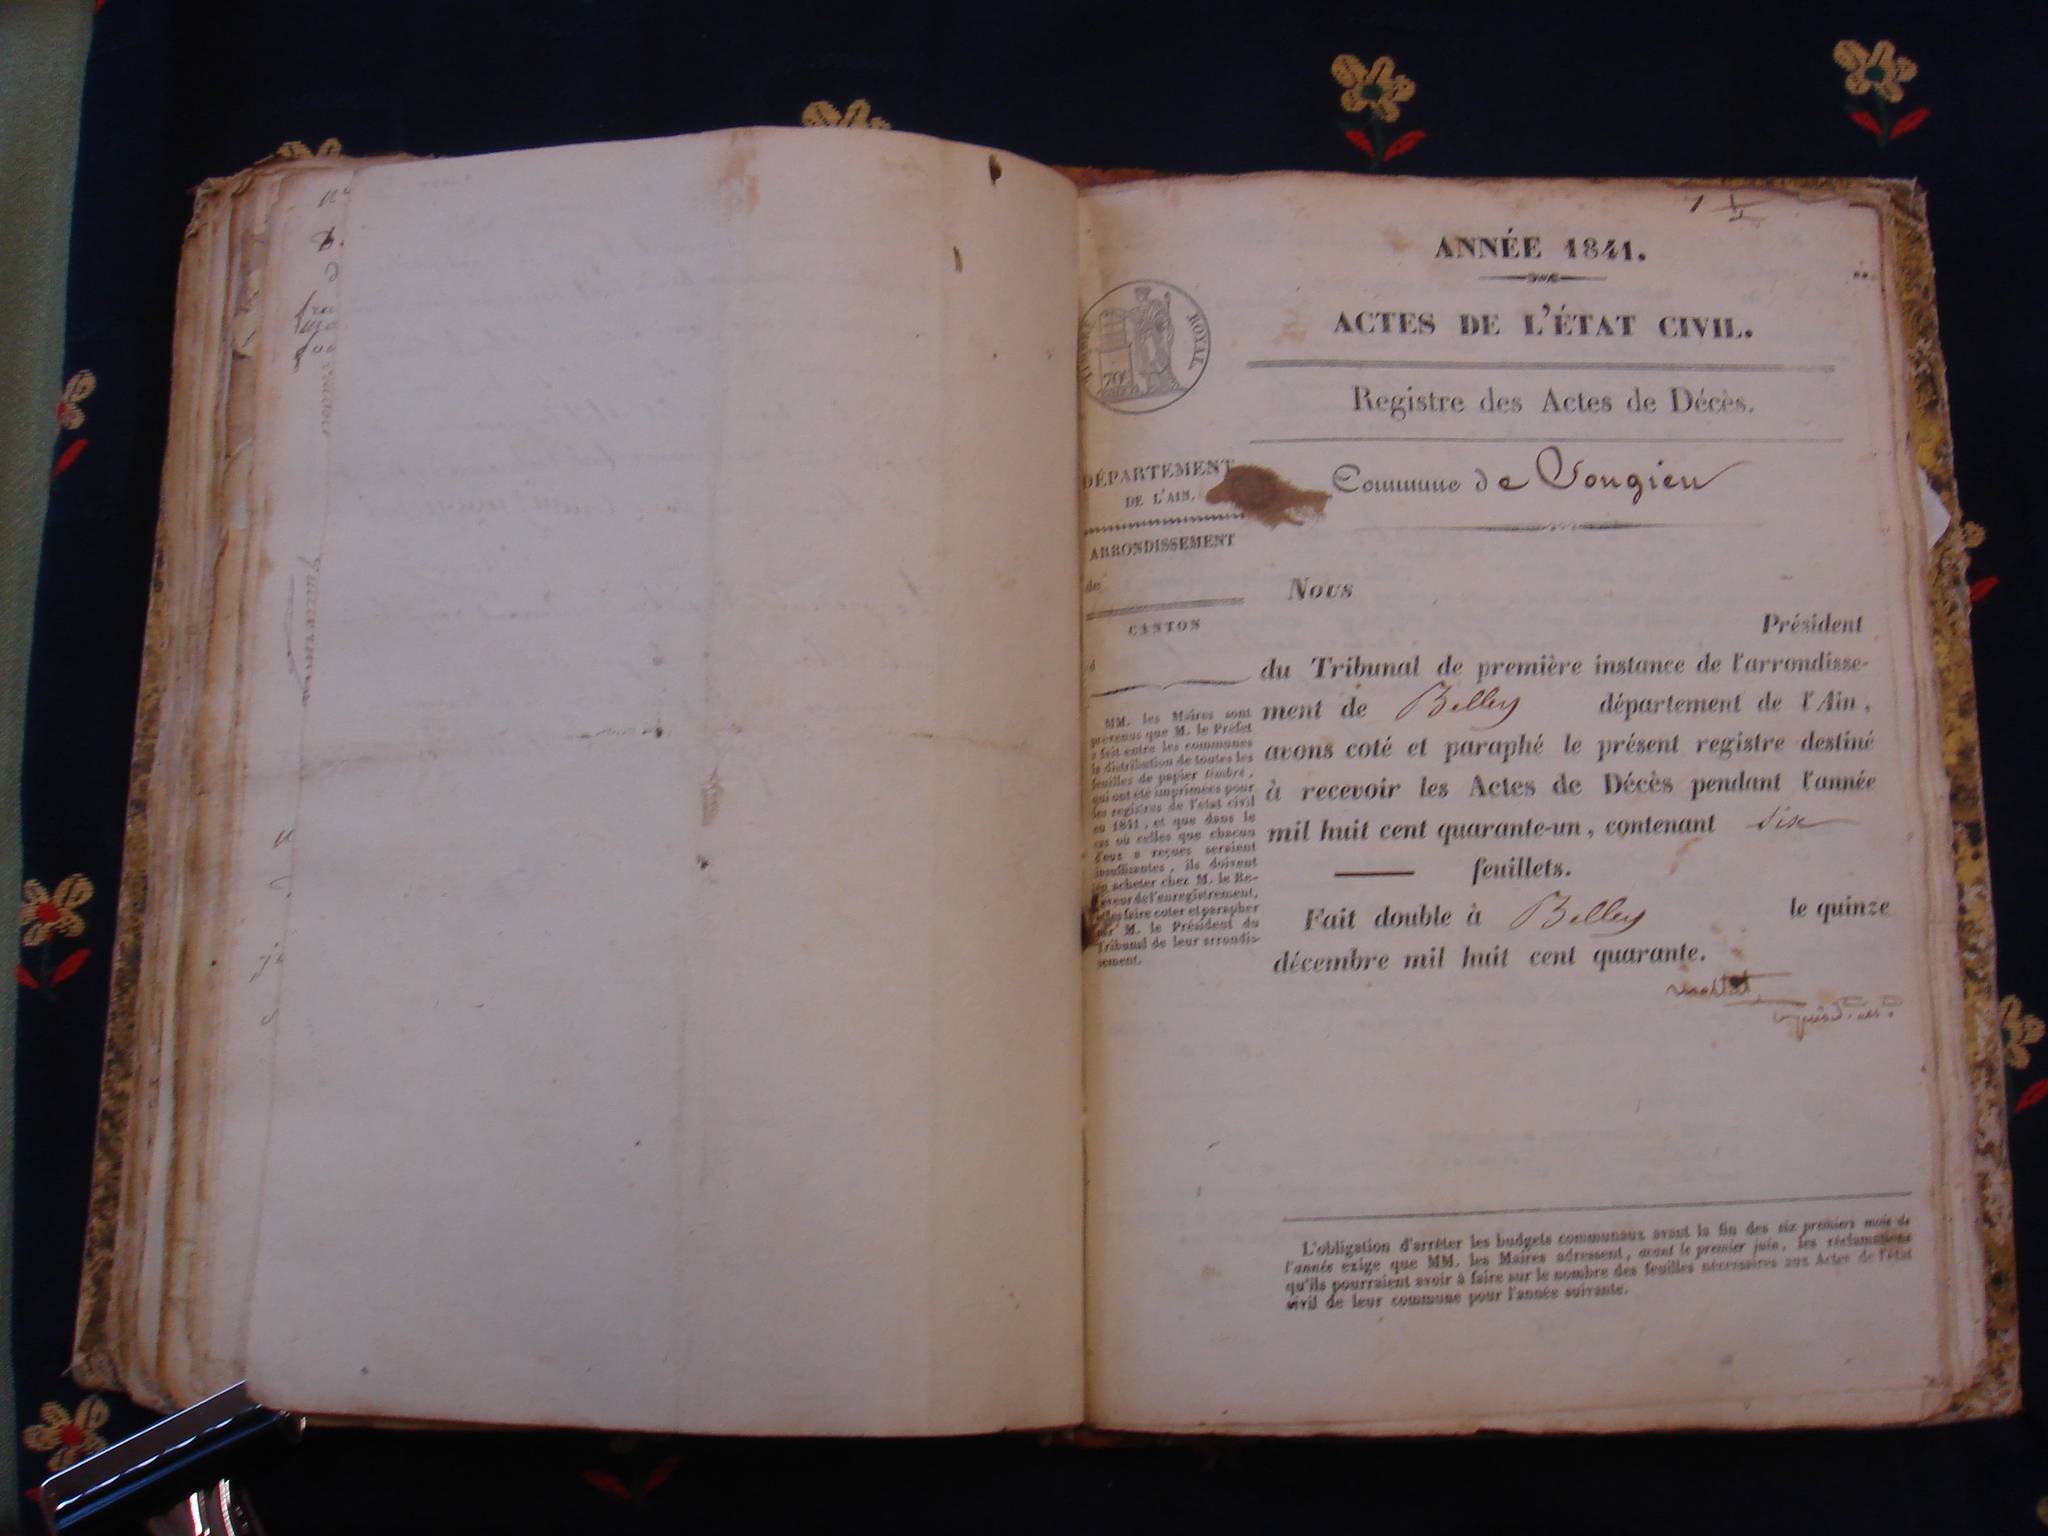 ANNÉE 1841.
ACTES DE L'ÉTAT CIVIL.
Registre des Actes de Décès.
Commune de Vongieu
TIMBRE ROYAL
70c
DÉPARTEMENT
DE L'AIN.
ARRONDISSEMENT
de
CANTON
d
MM. les Maires sont
prévenus que M. le Préfet
a fait entre les communes
la distribution de toutes les
feuilles de papier timbré,
qui ont été imprimées pour
les registres de l'état civil
en 1841, et que dans le
cas où celles que chacun
d'eux a reçues seraient
insuffisantes, ils doivent
en acheter chez M. le Re-
ceveur de l'enregistrement,
et les faire coter et parapher
par M. le Président du
Tribunal de leur arrondis-
sement.
Nous
Président
du Tribunal de première instance de l'arrondisse-
ment de Belley département de l'Ain,
avons coté et paraphé le présent registre destiné
à recevoir les Actes de Décès pendant l'année
mil huit cent quarante-un, contenant six
feuillets.
Fait double à Belley le quinze
décembre mil huit cent quarante.
L'obligation d'arrêter les budgets communaux avant la fin des six premiers mois de
l'année exige que MM. les Maires adressent, avant le premier juin, les réclamations
qu'ils pourraient avoir à faire sur le nombre des feuilles nécessaires aux Actes de l'état
civil de leur commune pour l'année suivante.